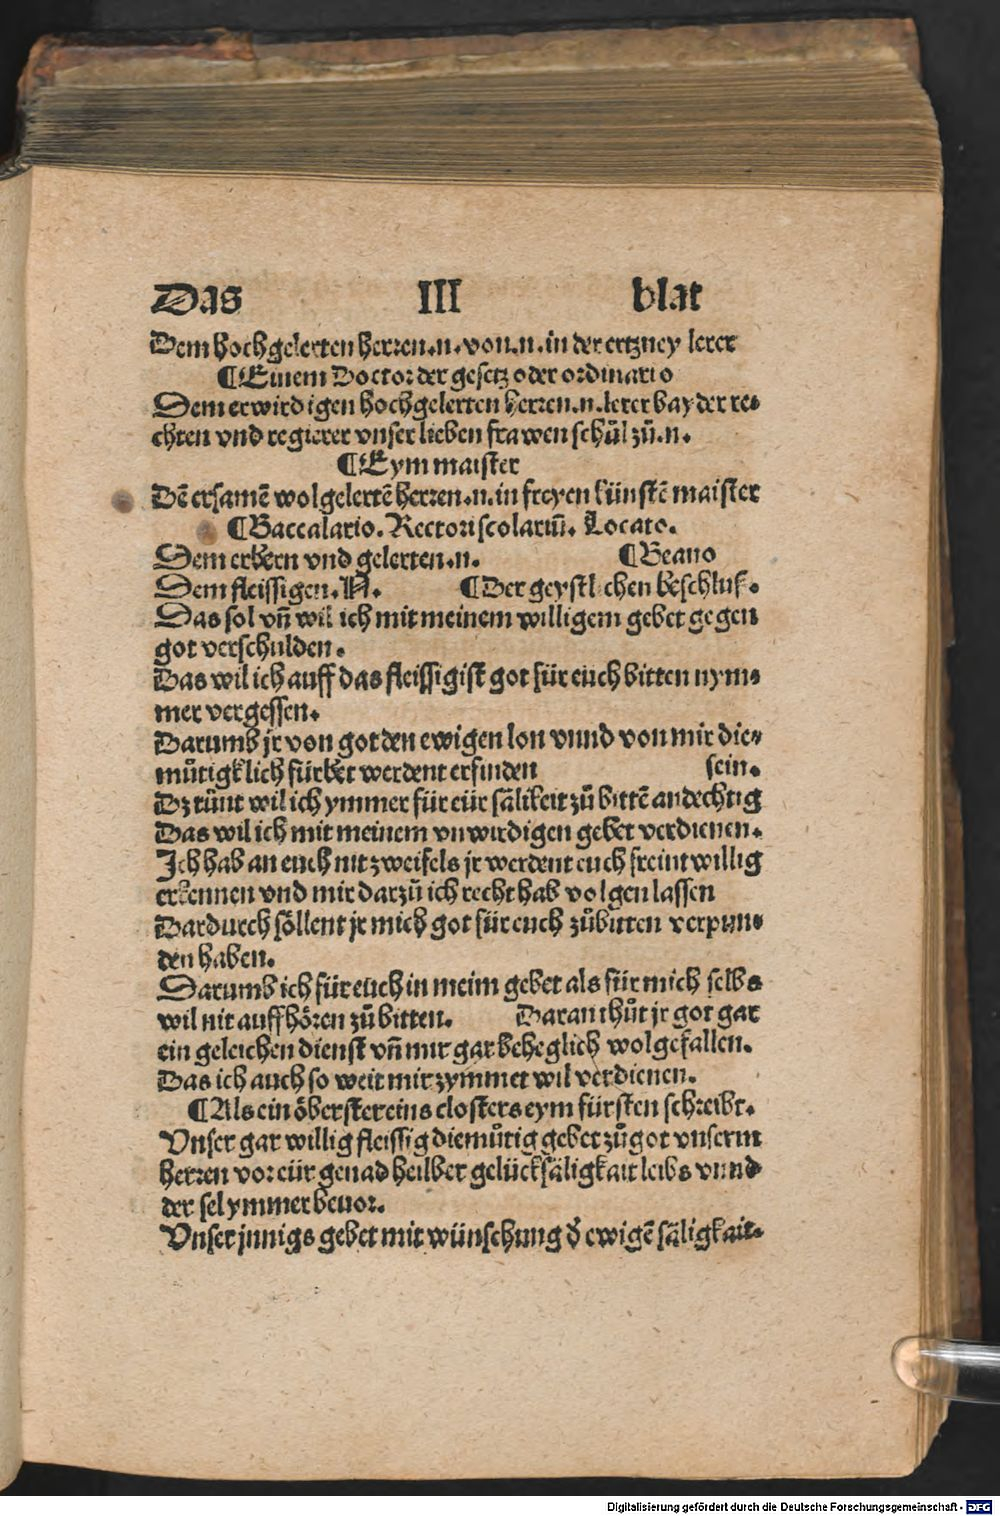 Das III blat
Dem hochgelerten herren.n.von.n.in der ertzney lerer
¶Einem Doctor der gesetz oder ordinario
Dem erwirdigen hochgelerten herren.n.lerer bayder re-
chten vnd regierer vnser lieben frawen schůl zů.n.
¶Eym maister
Dē ersamē wolgelertē herren.n.in freyen künstē maister
¶Baccalario. Rectori scolariū. Locato.
Dem erbern vnd gelerten.n. ¶Beano
Dem fleissigen.N. ¶Der geystlichen beschluß.
Das sol vn̄ wil ich mit meinem willigem gebet gegen
got verschulden.
Das wil ich auff das fleissigist got für euch bitten nym-
mer vergessen.
Darumb jr von got den ewigen lon vnnd von mir die-
můtigklich fürbet werdent erfinden sein.
Dz tünt wil ich ymmer für eür sälikeit zů bittē andechtig
Das wil ich mit meinem vnwirdigen gebet verdienen.
Ich hab an euch nit zweifels jr werdent euch freintwillig
erkennen vnd mir darzů ich recht hab volgen lassen
Dardurch söllent jr mich got für euch zůbitten verpun-
den haben.
Darumb ich für euch in meim gebet als für mich selbs
wil nit auffhören zů bitten. Daran thůt jr got gar
ein geleichen dienst vn̄ mir gar beheglich wolgefallen.
Das ich auch so weit mir zymmet wil verdienen.
¶Als ein öberster eins closters eym fürsten schreibt.
Vnser gar willig fleissig diemůtig gebet zů got vnserm
herren vor eür genad heilber gelücksäligkait leibs vnnd
der sel ymmer beuor.
Vnser jnnigs gebet mit wünschung d̓ ewigē säligkait.
Digitalisierung gefördert durch die Deutsche Forschungsgemeinschaft - DFG